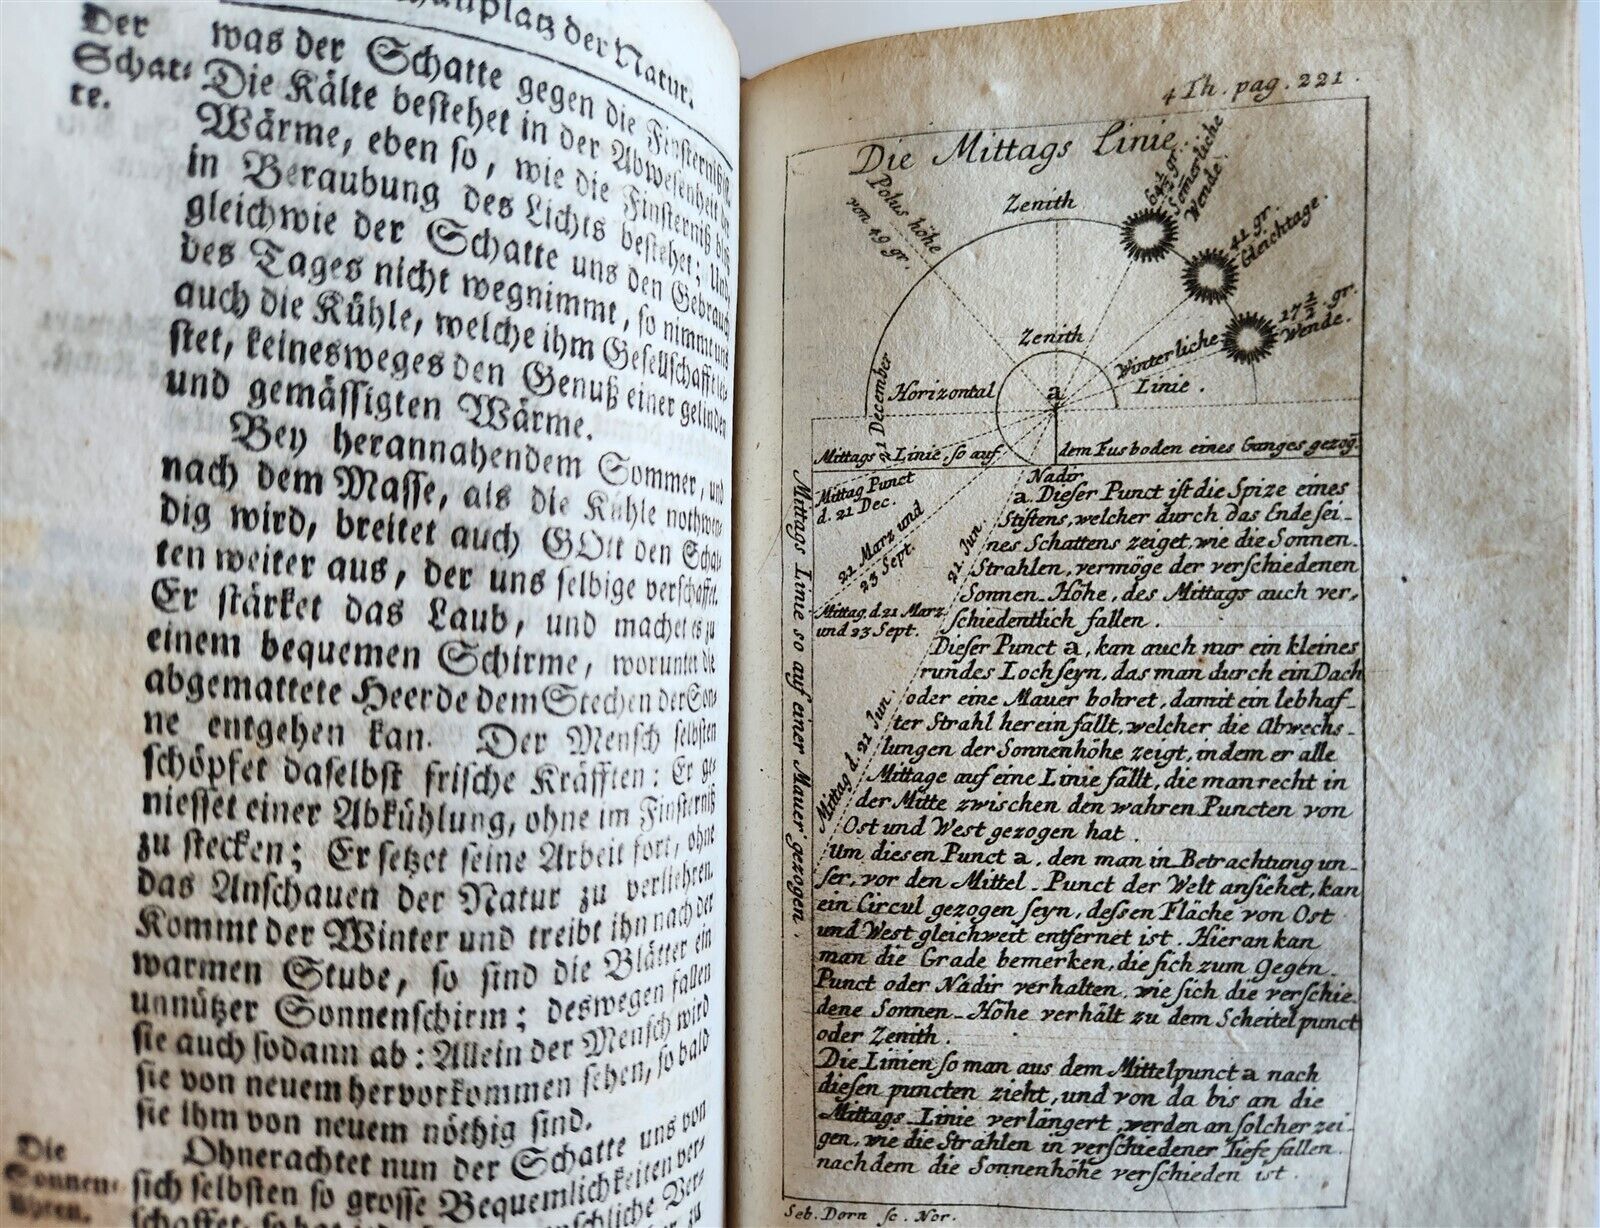 Schauplatz der Natur.
Der
Schat-
te.
was der Schatte gegen die Finsterniß ist.
Die Kälte bestehet in der Abwesenheit der
Wärme, eben so, wie die Finsterniß bloß
in Beraubung des Lichts bestehet; Und
gleichwie der Schatte uns den Gebrauch
des Tages nicht wegnimmt, so nimmt uns
auch die Kühle, welche ihm Gesellschafft lei-
stet, keinesweges den Genuß einer gelinden
und gemässigten Wärme.
Bey herannahendem Sommer, und
nach dem Masse, als die Kühle nothwen-
dig wird, breitet auch GOtt den Schat-
ten weiter aus, der uns selbige verschafft.
Er stärket das Laub, und machet es zu
einem bequemen Schirme, worunter die
abgemattete Heerde dem Stechen der Son-
ne entgehen kan. Der Mensch selbsten
schöpfet daselbst frische Kräfften: Er ge-
niesset einer Abkühlung, ohne im Finsterniß
zu stecken; Er setzet seine Arbeit fort, ohne
das Anschauen der Natur zu verliehren.
Kommt der Winter und treibt ihn nach der
warmen Stube, so sind die Blätter ein
unnützer Sonnenschirm; deswegen fallen
sie auch sodann ab: Allein der Mensch wird
sie von neuem hervorkommen sehen, so bald
sie ihm von neuem nöthig sind.
Die
Sonnen-
Uhren.
Ohnerachtet nun der Schatte uns von
sich selbsten so grosse Bequemlichkeiten ver-
schaffet, so hat
4 Th. pag. 221.
Die Mittags Linie
Polus höhe
von 49 gr.
Zenith
64½ gr.
Som̄erliche
Wende.
41 gr.
Gleichtage.
17½ gr.
Wende.
Zenith
Winterliche
Linie.
21 December
Horizontal
a
Mittags Linie, so auf dem Fusboden eines Ganges gezoḡ.
Nadir
Mittag Punct
d. 21 Dec.
21 Marz und
23 Sept.
21 Jun.
Mittag d. 21 Marz
und 23 Sept.
Mittag d. 21 Jun.
Mittags Linie so auf einer Mauer gezogen.
a. Dieser Punct ist die Spize eines
Stiftens, welcher durch das Ende sei-
nes Schattens zeiget, wie die Sonnen-
Strahlen, vermöge der verschiedenen
Sonnen-Höhe, des Mittags auch ver,
schiedentlich fallen.
Dieser Punct a, kan auch nur ein kleines
rundes Loch seyn, das man durch ein Dach
oder eine Mauer bohret, damit ein lebhaf-
ter Strahl herein fällt, welcher die Abwechs-
lungen der Sonnenhöhe zeigt, indem er alle
Mittage auf eine Linie fällt, die man recht in
der Mitte zwischen den wahren Puncten von
Ost und West gezogen hat.
Um diesen Punct a, den man in Betrachtung un-
ser, vor den Mittel-Punct der Welt ansiehet, kan
ein Circul gezogen seyn, dessen Fläche von Ost
und West gleichweit entfernet ist. Hieran kan
man die Grade bemerken, die sich zum Gegen-
Punct oder Nadir verhalten, wie sich die verschie-
dene Sonnen-Höhe verhält zu dem Scheitelpunct
oder Zenith.
Die Linien so man aus dem Mittelpunct a nach
diesen puncten zieht, und von da bis an die
Mittags-Linie verlängert, werden an solcher zei-
gen, wie die Strahlen in verschiedener Tiefe fallen.
nachdem die Sonnenhöhe verschieden ist.
Seb. Dorn sc. Nor.